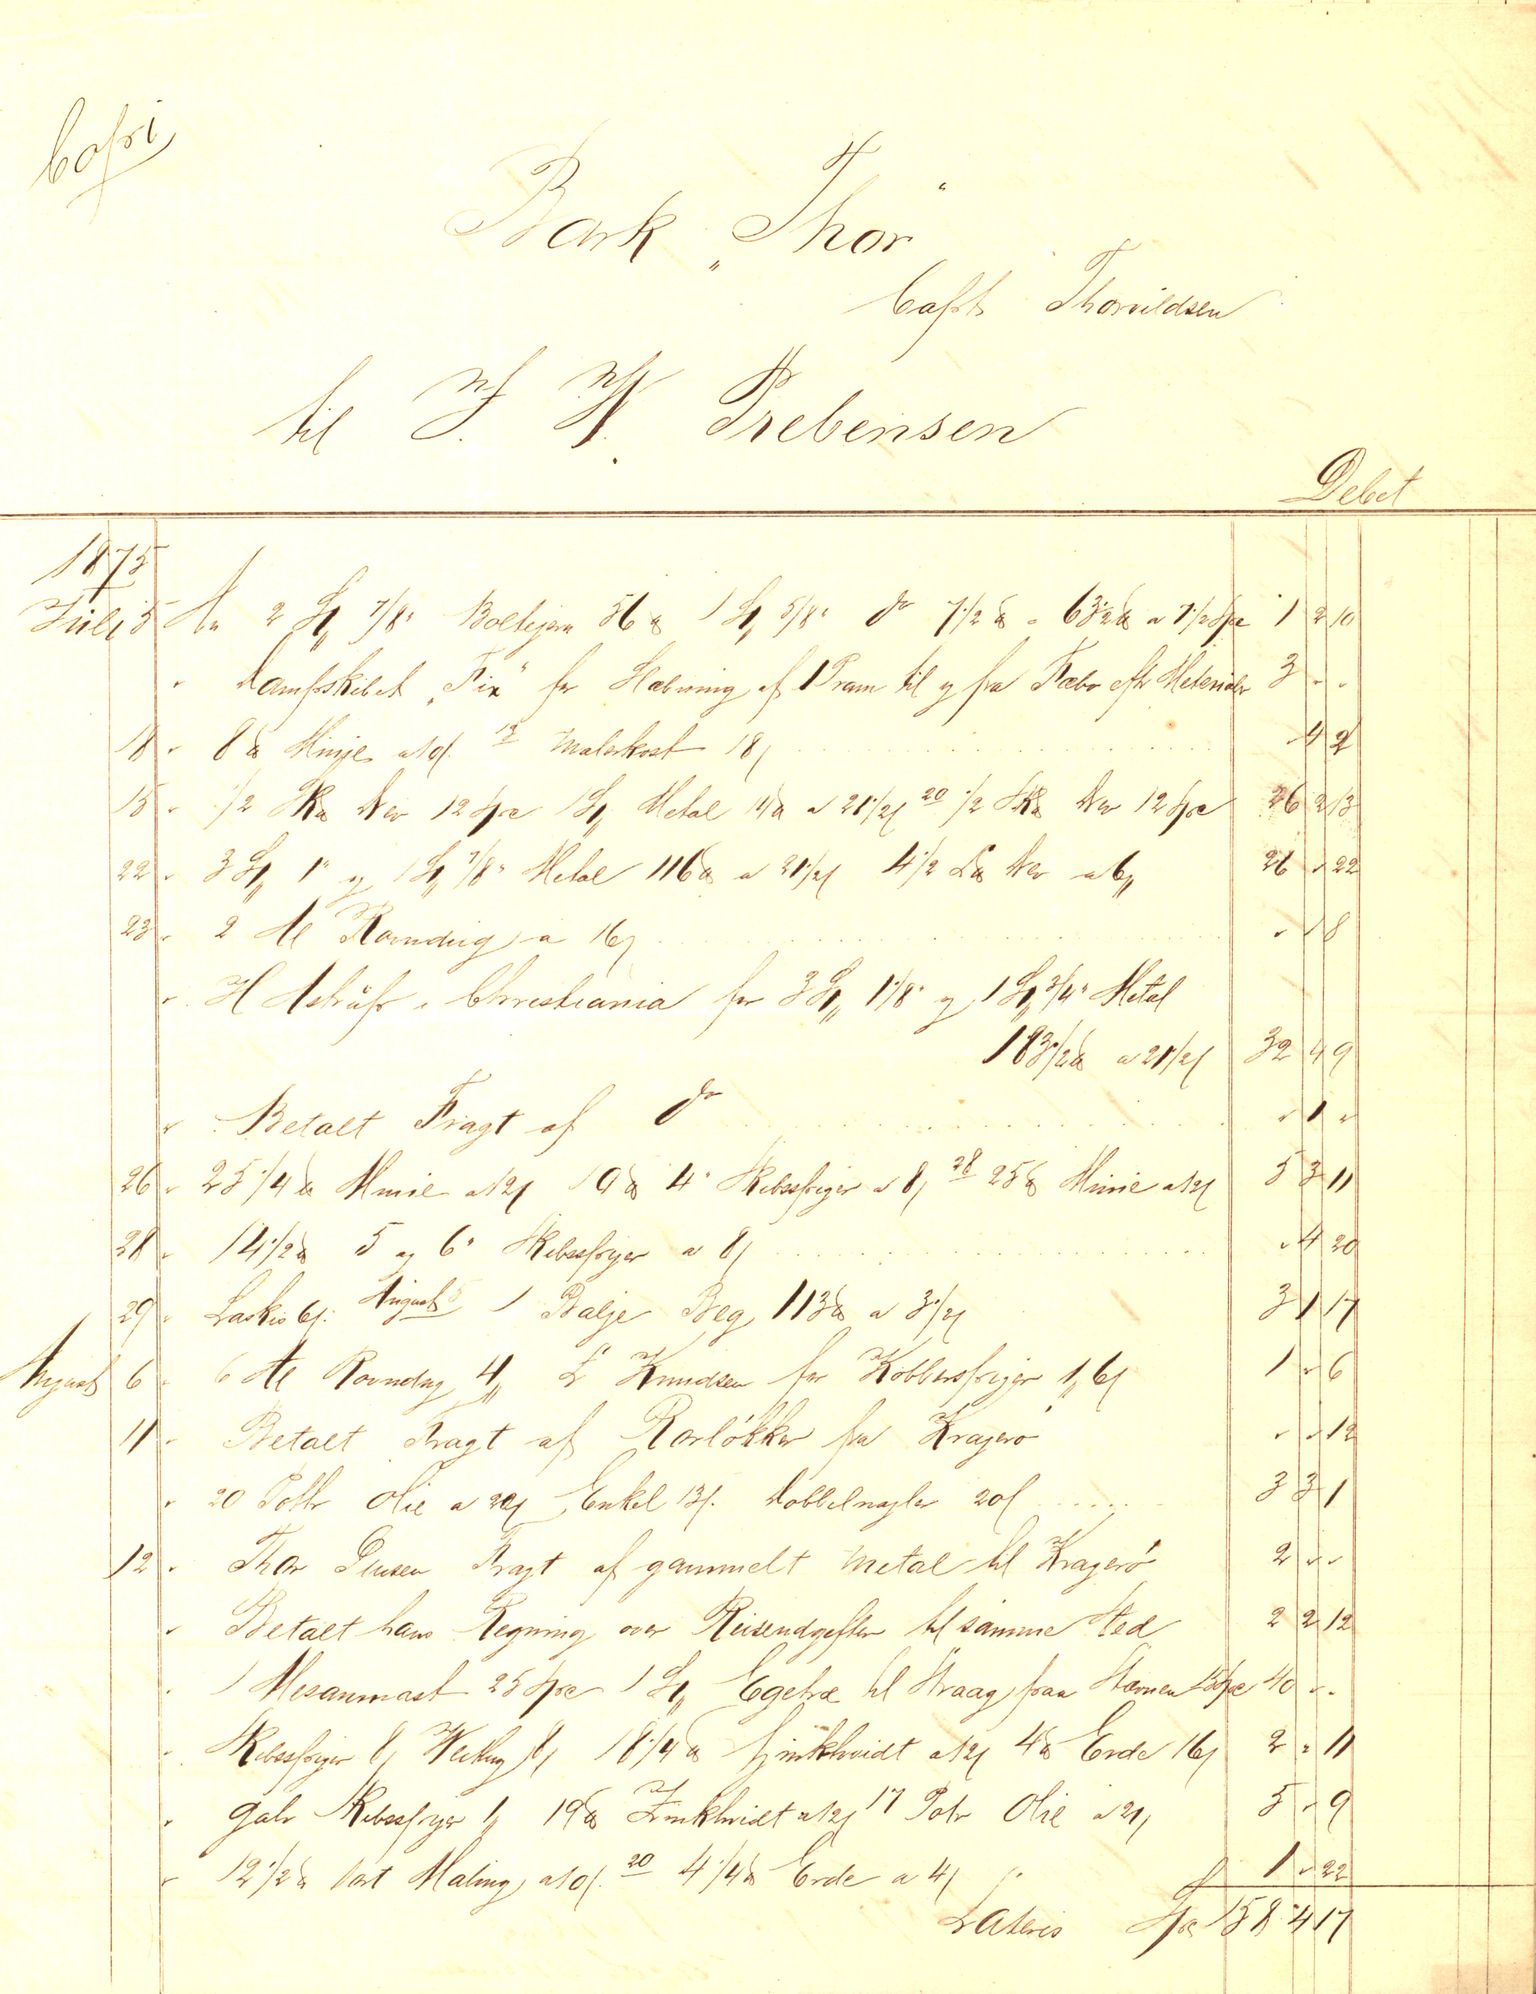 Copi
Bark „Thor"
Capt. Thorvildsen
til J. W. Prebensen
Debet
1875
Juli 5 An 2 St„ 7/8" Boltejern 56 ℔ 1 St„ 5/8" do 7 1/2 ℔ = 63 1/2 ℔ a 7 1/2 Spe 1 2 10
" Dampskibet „Fix" for Hæbning af 1 Pram til og fra Fæbo eft Materialer 3 " "
18 " 8 ℔ Minje a 10ʃ. 19 Malerkost 18ʃ " 4 2
15 " 1/2 Sk℔ Dev 12 Spe 1 St„ Metal a 21 1/2ʃ 20 1/2 Sk℔ Dev 12 Spe 26 2 13
22 " 3 St„ 1" og 1 St„ 7/8" Metal 116 ℔ a 21 1/2ʃ 4 1/2 L℔ Dev a 6„ 26 " 22
23 " 2 Al Ravndug a 16ʃ " " 8
" H Astrup i Christiania for 3 St„ 1 1/8" og 1 St„ 3/4" Metal
183 1/2 ℔ a 21 1/2ʃ 32 4 9
" Betalt Fragt af do " 1 "
26 " 25 1/4 ℔ Minie a 12ʃ 10 ℔ 4" Skibsspiger a 8ʃ 28 25 ℔ Minie a 12ʃ 5 3 11
28 " 14 1/2 ℔ 5 og 6" Skibsspiger a 8ʃ " 4 20
29 " Laskis 6ʃ: August 5 1 Balje Beg 113 ℔ a 3 1/2ʃ 3 1 17
August 6 " 6 Al Ravndug 4„ L Knudsen for Kobberspiger 1„ 6ʃ 1 " 6
11 " Betalt Fragt af Rorløkker fra Kragerø " " 12
" 20 Potter Olie a 20ʃ Enkel 13ʃ. Dobbelnagler 20ʃ 3 3 1
12 " Thor Fragt af gammelt Metal til Kragerø 2 " "
" Betalt hans Regning over Reiseudgifter til samme Sted 2 2 12
" 1 Mesanmast 25 Spe 1 St„ Egetræ til Straag fraa Stævnen 15 Spe 40 " "
" Skibsspiger 8ʃ 8ʃ 18 1/4 ℔ Zinkhvidt a 12ʃ 4 ℔ Erde 16ʃ 2 " 11
" galv Skibsspiger 1„ 19 ℔ Zinkhvidt a 12ʃ 17 Potr Olie a 21ʃ 5 " 9
" 12 1/2 ℔ sort Maling a 10ʃ. 20 4 1/4 ℔ Erde a 4ʃ 1 " 22
Lateris Spe 158 4 17